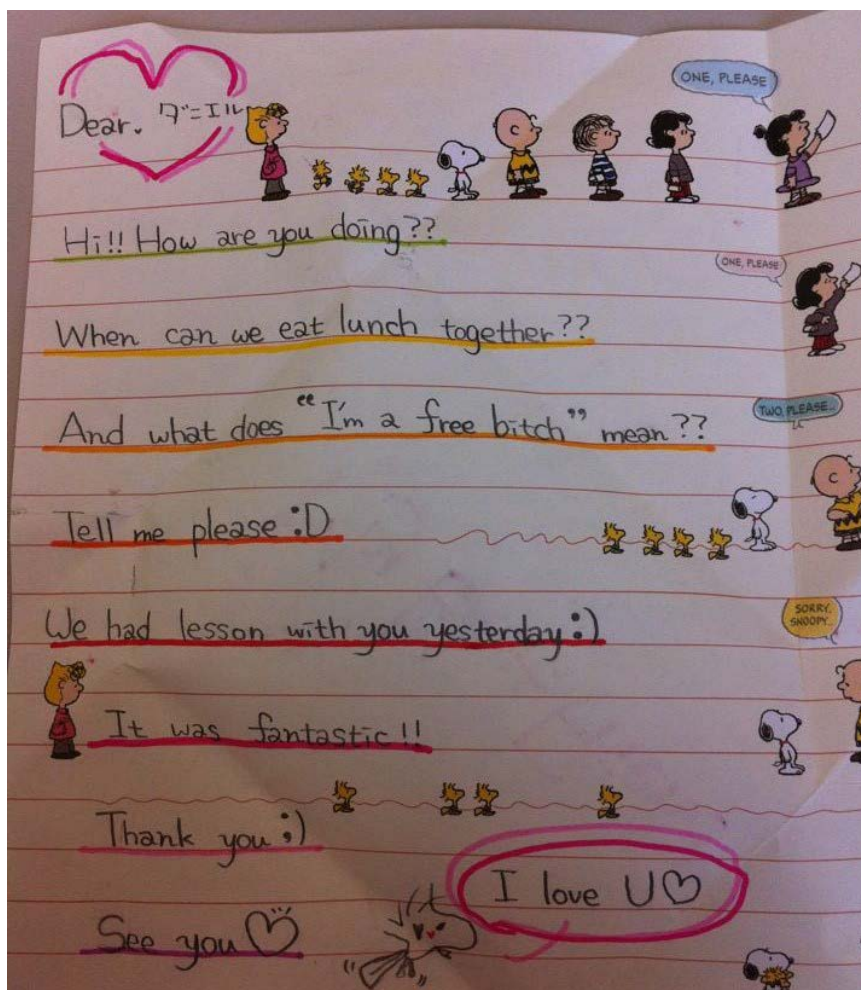 ONE, PLEASE
Dear. ダニエル
Hi!! How are you doing??
ONE, PLEASE
When can we eat lunch together??
TWO, PLEASE...
And what does “I'm a free bitch” mean??
Tell me please :D
SORRY, SNOOPY...
We had lesson with you yesterday :)
It was fantastic!!
Thank you ;)
I love U♡
See you ♡